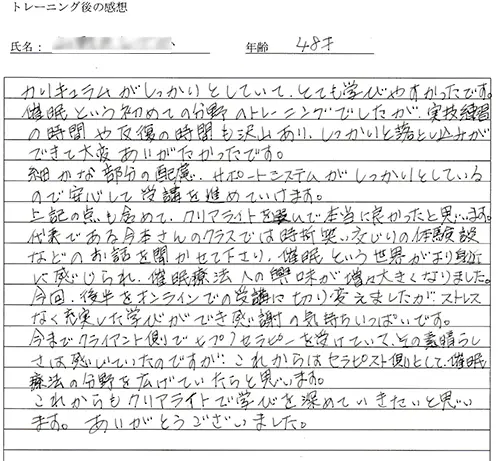 トレーニング後の感想
氏名： 年齢 48才
カリキュラムがしっかりとしていて、とても学びやすかったです。
催眠という初めての分野のトレーニングでしたが、実技練習
の時間や反復の時間も沢山あり、しっかりと落とし込みが
できて大変ありがたかったです。
細かな部分の配慮、サポートシステムがしっかりとしている
ので安心して受講を進めていけます。
上記の点も含めて、クリアライトを選んで本当に良かったと思います。
代表である今本さんのクラスでは時折笑い交じりの体験談
などのお話を聞かせて下さり、催眠という世界がより身近
に感じられ、催眠療法への興味が増々大きくなりました。
今回、後半をオンラインでの受講に切り変えましたがストレス
なく充実した学びができ感謝の気持ちいっぱいです。
今までクライアント側でヒプノセラピーを受けていて、その素晴らし
さは感じていたのですが、これからはセラピスト側として、催眠
療法の分野を広げていたらと思います。
これからもクリアライトで学びを深めていきたいと思い
ます。ありがとうございました。